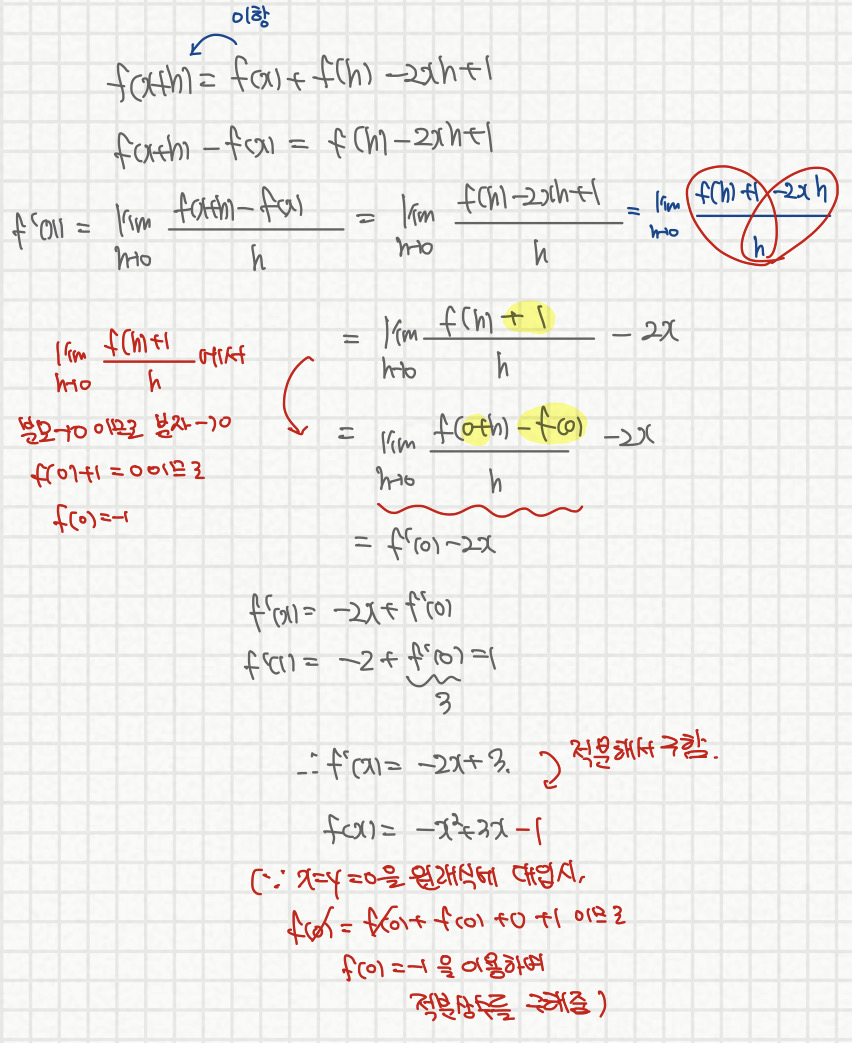 이항
f(x+h) = f(x) + f(h) - 2xh + 1
f(x+h) - f(x) = f(h) - 2xh + 1
f'(x) = lim h→0 f(x+h) - f(x) / h = lim h→0 f(h) - 2xh + 1 / h = lim h→0 f(h) + 1 - 2xh / h
= lim h→0 f(h) + 1 / h - 2x
lim h→0 f(h) + 1 / h 에서
분모→0 이므로 분자→0
f(0) + 1 = 0 이므로
f(0) = -1
= lim h→0 f(0+h) - f(0) / h - 2x
= f'(0) - 2x
f'(x) = -2x + f'(0)
f'(1) = -2 + f'(0) = 1
3
∴ f'(x) = -2x + 3.
적분해서 구함.
f(x) = -x² + 3x - 1
(∵ x = y = 0을 원래식에 대입시.
f(0) = f(0) + f(0) + 0 + 1 이므로
f(0) = -1 을 이용하여
적분상수를 구해줌)